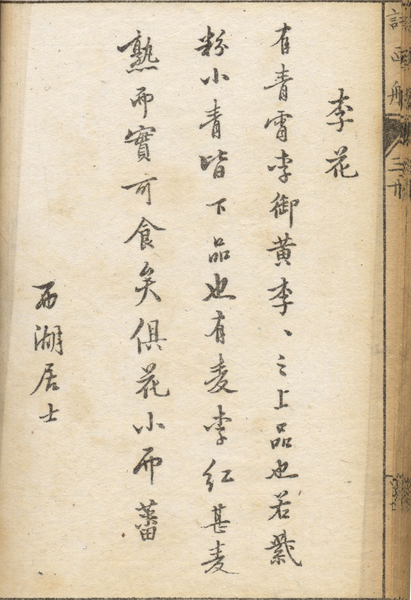 李花
有青霄李御黃李、之上品也若紫
粉小青皆下品也有麥李紅甚麥
熟而實可食矣俱花小而蕃
西湖居士